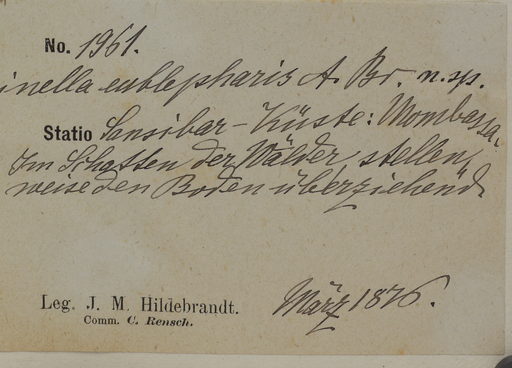 No. 1961.
inella eublepharis A. Br. n. sp.
Statio Sansibar-Küste: Mombassa.
Im Schatten der Wälder, stellen,
weise den Boden überziehend.
Leg. J. M. Hildebrandt.
Comm. C. Rensch.
März 1876.